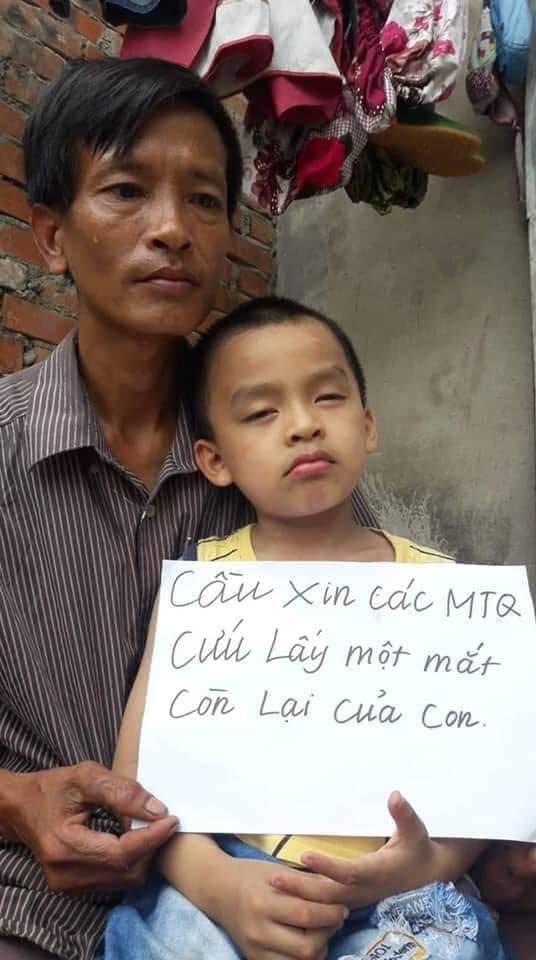 Cầu xin các MTQ
Cứu Lấy một mắt
Còn Lại của con.